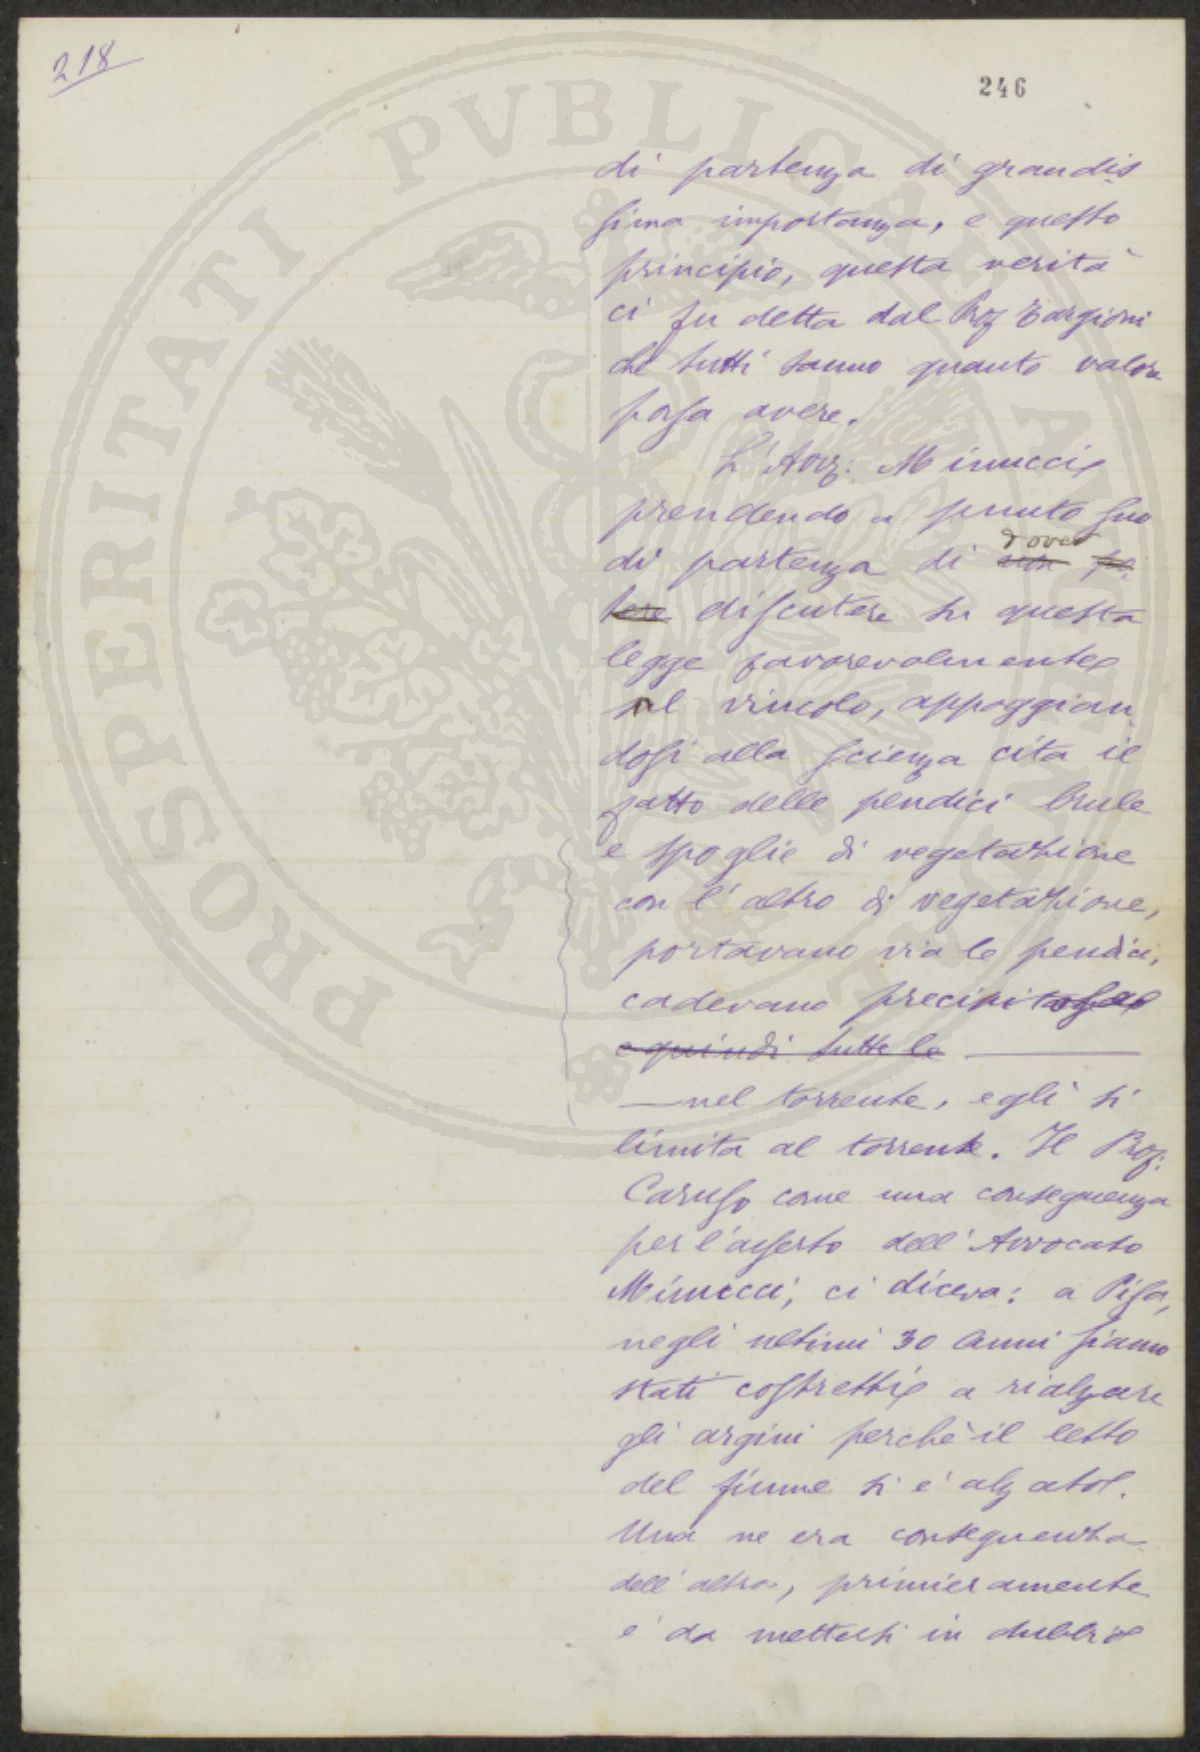 218
246
di partenza di grandis
sima importanza, e questo
principio, questa verità
ci fu detta dal Prof Targioni
che tutti sanno quanto valore
possa avere.
L'Avv: Minucci
prendendo a punto suo
dover
di partenza di non po
tere discutere su questa
legge favorevolmente
al vincolo, appoggian
dosi alla scienza cita il
fatto delle pendici brulle
e spoglie di vegetazione
con l'altro di vegetazione,
portavano via le pendici,
cadevano precipitose
e quindi tutte le
nel torrente, egli si
limita al torrente. Il Prof:
Caruso come una conseguenza
per l'asserto dell'Avvocato
Minucci, ci diceva: a Pisa,
negli ultimi 30 anni siamo
stati costretti a rialzare
gli argini perchè il letto
del fiume si è alzato.
Una ne era conseguenza
dell'altra, primieramente
è da mettersi in dubbio
PROSPERITATI PVBLICAE AVGENDAE